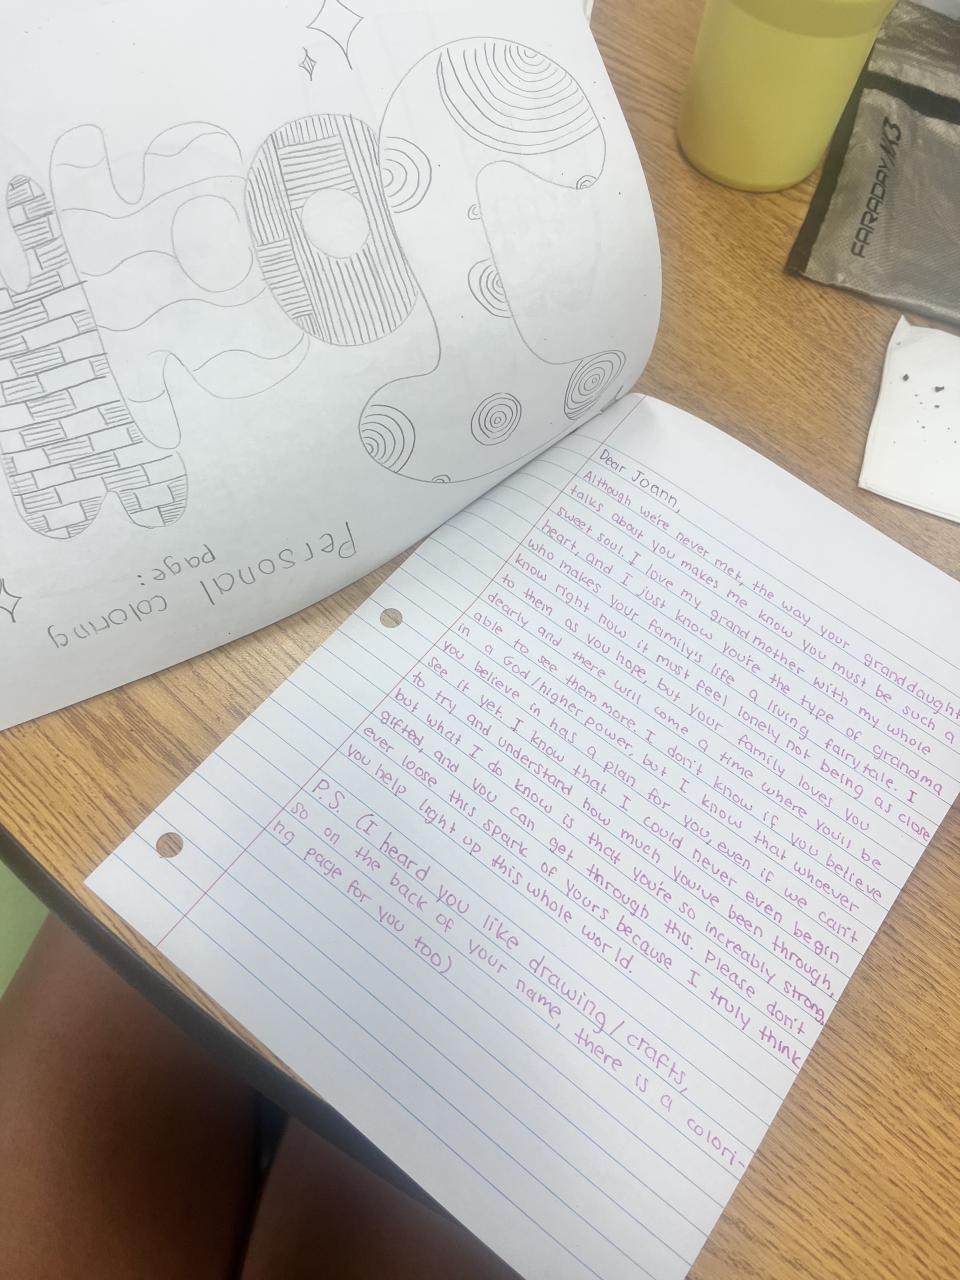 Personal coloring
page:
FARADAY/K3
Dear Joann,
Although we're never met, the way your granddaught
talks about you makes me know you must be such a
sweet soul. I love my grandmother with my whole
heart, and I just know you're the type of grandma
who makes your family's life a living fairytale. I
know right now it must feel lonely not being as close
to them as you hope, but your family loves you
dearly and there will come a time where you'll be
able to see them more. I don't know if you believe
in a God/higher power, but I know that whoever
you believe in has a plan for you, even if we can't
see it yet. I know that I could never even begin
to try and understand how much you've been through,
but what I do know is that you're so increably strong,
gifted, and you can get through this. Please don't
ever loose this spark of yours because I truly think
you help light up this whole world.
P.S. (I heard you like drawing/crafts,
so on the back of your name, there is a colori-
ng page for you too)